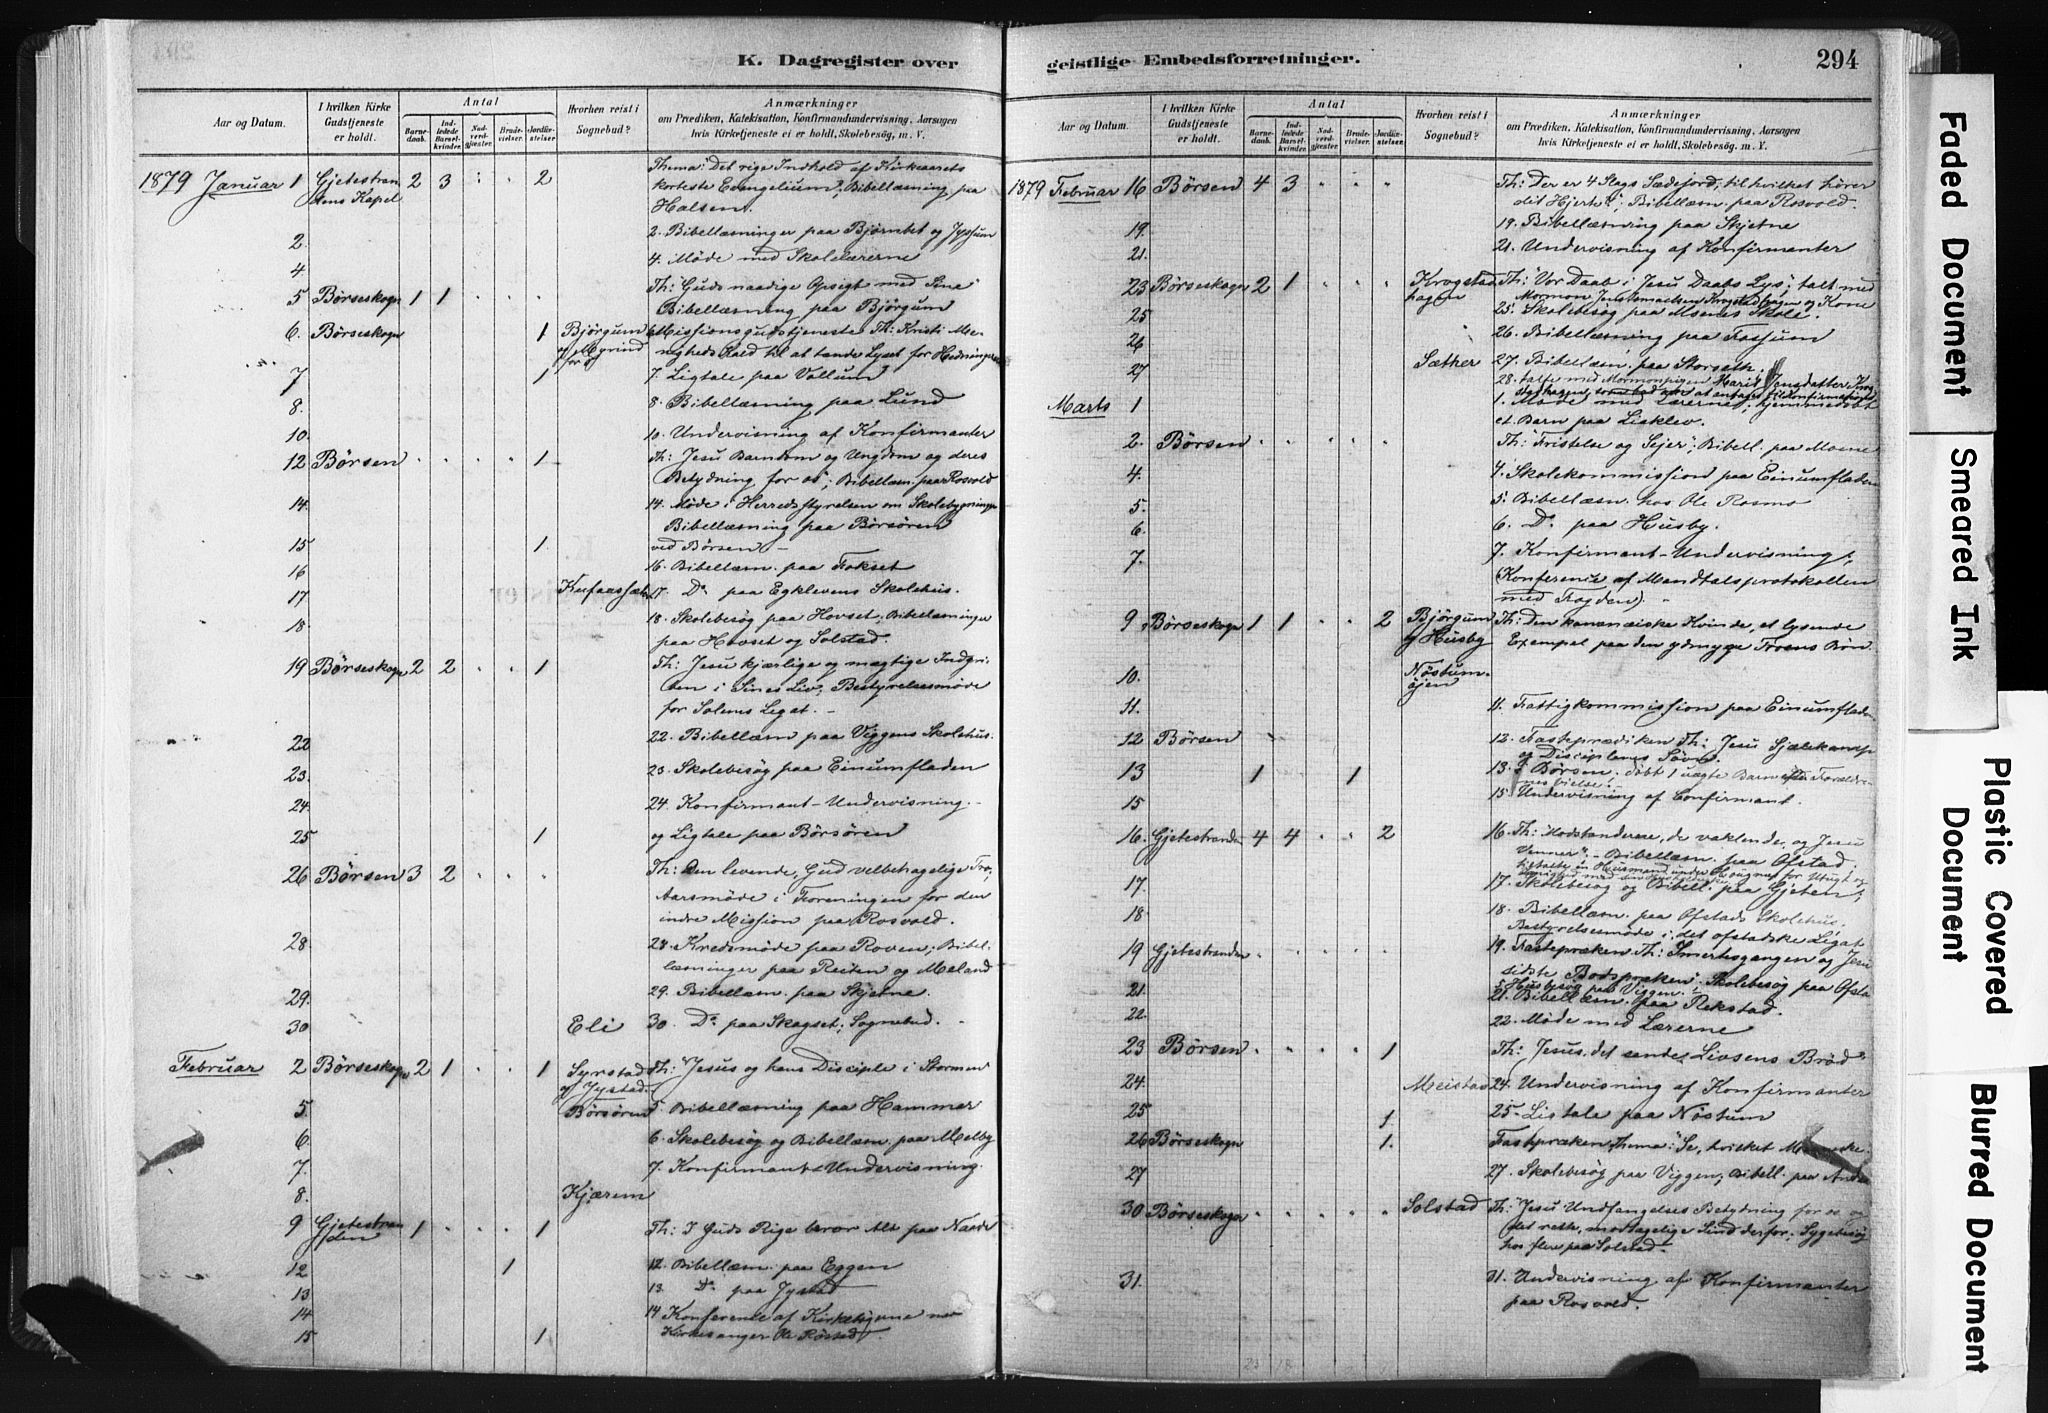 K. Dagregister over
Aar og Datum.
I hvilken Kirke Gudstjeneste er holdt.
Antal
Barnedaab.
Indledede Barselkvinder.
Nadverdgjester.
Brudevielser.
Jordfæstelser.
Hvorhen reist i Sognebud?
Anmærkninger
om Prædiken, Katekisation, Konfirmandundervisning, Aarsagen
hvis Kirketjeneste ei er holdt, Skolebesög, m. V.
1879 Januar 1 Gjetestrandens Kapel 2 3 " " 2 Thema: Det rige Indhold af Kirkeaarets
korteste Evangelium; Bibellæsning paa
Halsen.
2. 2. Bibellæsninger paa og
4 4. Møde med Skolelærerne
5 Börseskogn 1 1 Th: Guds naadige Opsigt med Sine
Bibellæsning paa Bjørgum
6. Börseskogn 1 Bjørgum og 6. Missionsgudstjeneste Th: Kristi Me-
nigheds Kald til at tænde Lyset for Hedningerne
7 1 7. Ligtale paa Vollum
8. 8. Bibellæsning paa Lund
10. 10. Undervisning af Konfirmanter
12 Börsen 1 Th: Jesu Barndom og Ungdom og deres
Betydning for os; Bibellæsn. paa Rosvold
14. 14. Møde i Herredsstyrelsen om Skolebygninge
Bibellæsning paa Börsören
15 1. ved Börsen -
16 16. Bibellæsn. paa Fokset
17 17. Do paa Egklevens Skolehus.
18. 18. Skolebesøg paa Hovset, Bibellæsninger
paa Hovset og Solstad.
19 Börseskogn 2 2 1 Th: Jesu kjærlige og mægtige Indgri-
ben i Sines Liv, Bestyrelsesmøde
for Solems Legat. -
22 22. Bibellæsn paa Viggens Skolehus.
23. 23. Skolebesøg paa Einumfladen
24. 24. Konfirmant-Undervisning. -
25 1 og Ligtale paa Börsören
26 Börsen 3 2 Th: Den levende, Gud velbehagelige Tro,
Aarsmøde i Foreningen for den
indre Mission paa Rosvold.
28. 28. Kredsmøde paa Roven; Bibel-
læsninger paa Reiten og Meland
29. 29. Bibellæsn. paa Skjetne.
30 Eli 30. Do paa Skagset; Sognebud. -
Februar 2 Börseskogn 2 1 1 Syrstad og Jystad. Th: "Jesus og hans Disciple i Stormen
5. Börsören 5. Bibellæsning paa Hammer
6. 6. Skolebesøg og Bibellæsn. paa Melby
7. 7. Konfirmant-Undervisning.
8. Kjærem
9 Gjetestranden 1 1 Th: I Guds Rige beror Alt paa Naade
12 1 12. Bibellæsn. paa Eggen
13 13. Do paa Jystad
14 14. Konference af Kirkebøgerne med
15 1 Kirkesanger Ole Rørstad.
geistlige Embedsforretninger.
294
Aar og Datum.
I hvilken Kirke Gudstjeneste er holdt.
Antal
Barnedaab.
Indledede Barselkvinder.
Nadverdgjester.
Brudevielser.
Jordfæstelser.
Hvorhen reist i Sognebud?
Anmærkninger
om Prædiken, Katekisation, Konfirmandundervisning, Aarsagen
hvis Kirketjeneste ei er holdt, Skolebesög, m. V.
1879 Februar 16 Börsen 4 3 Th: Der er 4 Slags Sædejord, til hvilket hører
dit Hjerte?; Bibellæsn. paa Rosvold.
19. 19. Bibellæsning paa Skjetne
21. 21. Undervisning af Konfirmanter
23 Börseskogn 2 1 Krogstadhagen Th: "Vor Daab i Jesu Daabs Lys"; talt med
Mormon og Kone
25 25. Skolebesøg paa Moenes Skole.
26 26. Bibellæsning paa
27 Sæther 27. Bibellæsn. paa Storseth.
28. talte med Mormonpigen Marit Jensdatter
Marts 1 1. Møde med Lærerne; hjemmedøbt
et Barn paa Liaklev.
2. Börsen Th: Fristelse og Sejer; Bibell. paa Moene
4. 4. Skolekommission paa Einumfladen
5. 5. Bibellæsn. hos Ole Rosmo
6. 6. Do paa Husby.
7. 7. Konfirmant-Undervisning;
(Konference af Mandtalsprotokollen
med Fogden). -
9 Börseskogn 1 1 2 Bjørgum og Husby Th: Den kananæiske Kvinde, et lysende
Exempel paa den ydmyge Troens Bøn
10. Nöstumöjen
11. 11. Fattigkommission paa Einumfladen
12 Börsen 12. Fasteprædiken Th: Jesu Sjælekamp
og Disciplenes Søvn.
13 1 1 13. I Börsen døbt 1 uægte Barn efter Forældre-
nes Vielse.
15 15. Undervisning af Confirmant.
16. Gjetestranden 4 4 2 16. Th: Modstanderne, de vaklende, og Jesu
Venner". - Bibellæsn. paa Ofstad.
17. 17. Skolebesøg og Bibell. paa Gjeten;
18. 18. Bibellæsn. paa Ofstads Skolehus.
Bestyrelsesmøde i det ofstadske Legat
19 Gjetestranden 19. Fastepræken Th: Smertesgangen og Jesu
sidste Bodspræken". Skolebesøg paa Ofsta
21. 21. Bibellæsn. paa Rekstad.
22. 22. Møde med Lærerne
23 Börsen 1 Th: "Jesus, det sande Livsens Brød"
24. Meistad 24. Undervisning af Konfirmanter
25 1 25. Ligtale paa Nöstum
26 Börseskogn 1. Fastpræken, Thema: "Se, hvilket Menneske.
27 27. Skolebesøg paa Viggen, Bibell. paa
30 Börseskogn Solstad Th: "Jesu Undfangelses Betydning for os og
det rette, modtagelige Sind derfor; Sygebesøg
hos flere paa Solstad.
31. 31. Undervisning af Konfirmanter
paa Rosvold.
23 18
Faded Document
Smeared Ink
Plastic Covered Document
Blurred Document